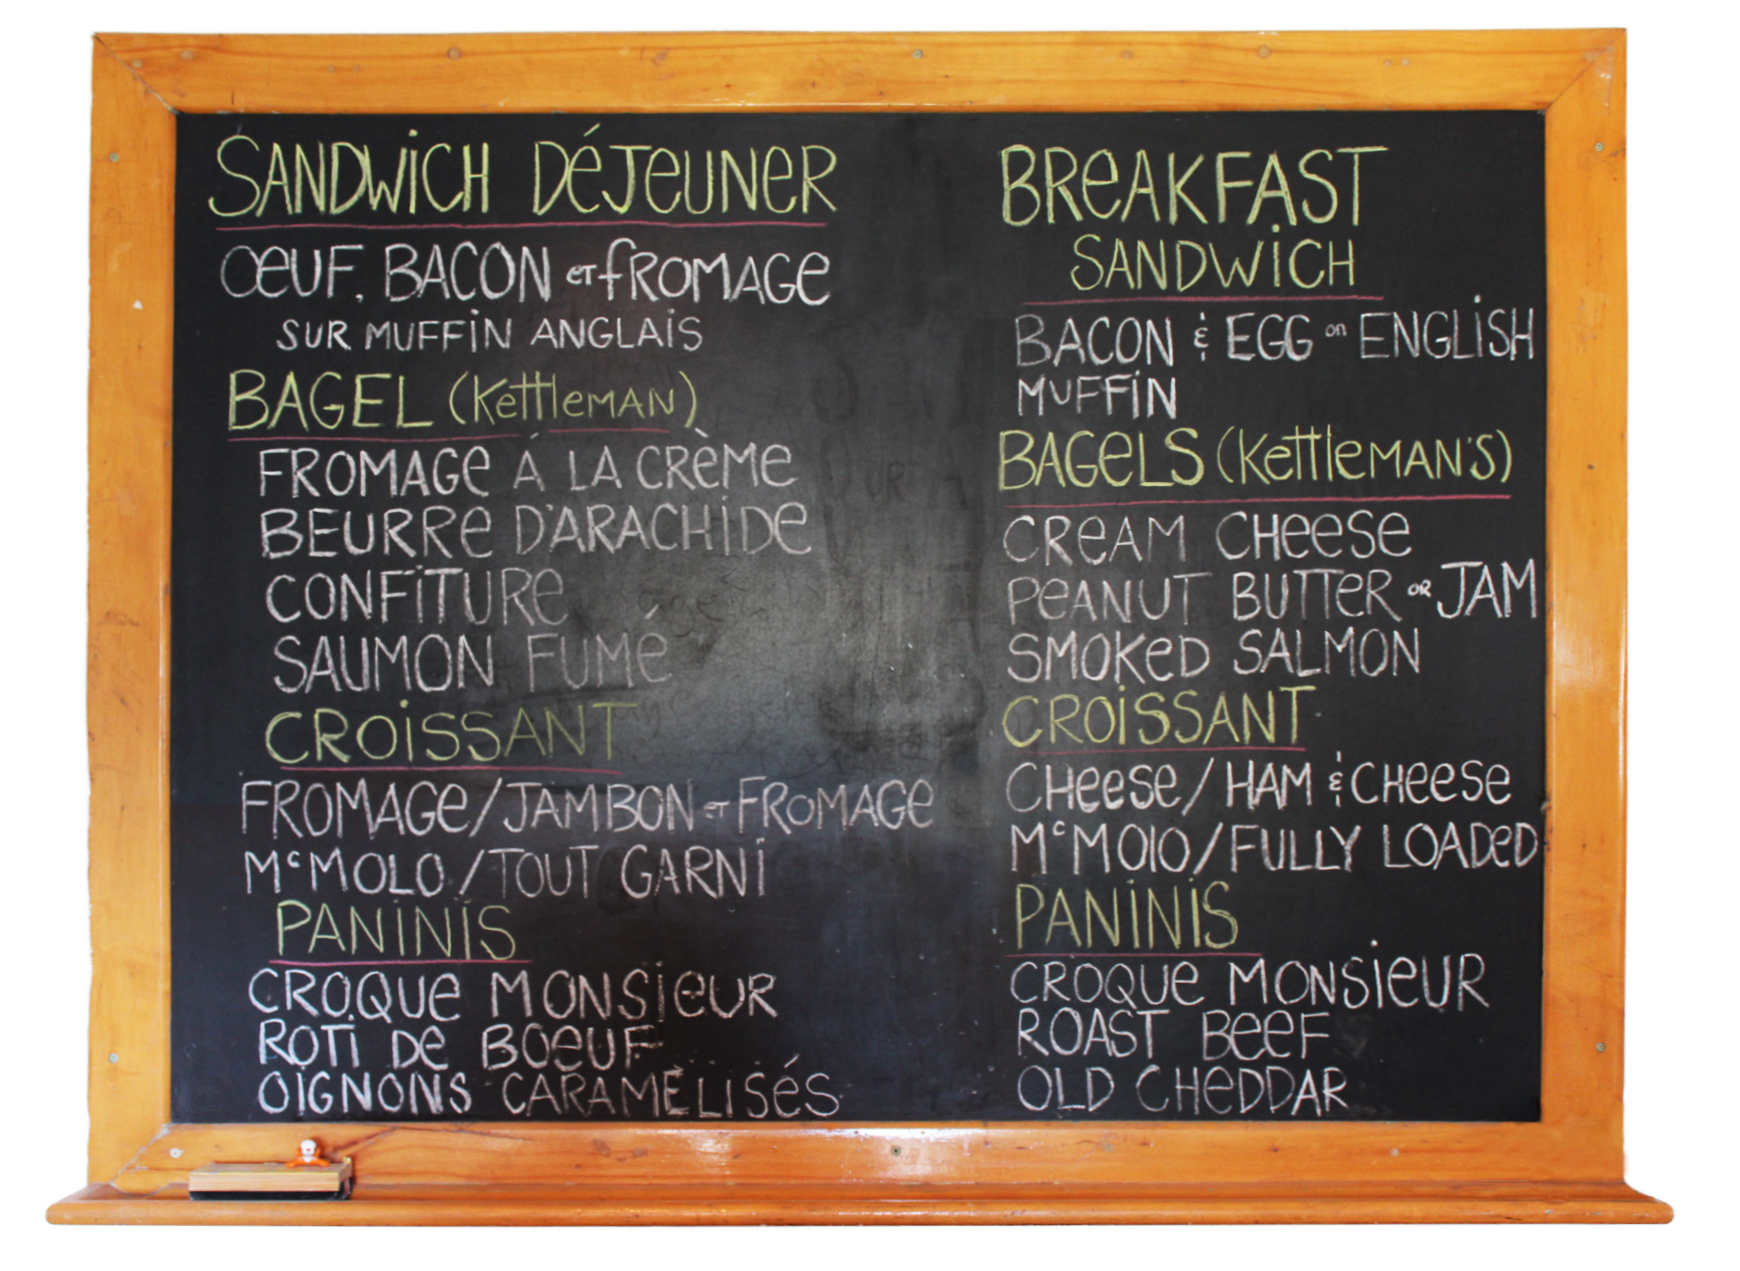 SANDWiCH DÉJeUNeR
OeUF, BACON eT fROMAGe
SUR MUFFiN ANGLAiS
BAGEL (KettleMAN)
FROMAGe Á LA CRèMe
BEURRe D'ARACHiDe
CONFiTURe
SAUMON FUMé
CROiSSANT
FROMAGe/JAMBON eT FROMAGe
McMOLO/TOUT GARNi
PANiNiS
CROQUe MONSieUR
ROTi De BOeUF
OiGNONS CARAMÉLiSÉS
BReAKFAST
SANDWiCH
BACON & EGG on ENGLiSH
MUFFiN
BAGeLS (KettleMAN'S)
CReAM CHeeSe
PeANUT BUTTeR OR JAM
SMOKeD SALMON
CROiSSANT
CHeeSe/HAM & CHeeSe
McMOlO/FULLY LOADeD
PANiNiS
CROQUe MONSieUR
ROAST BeeF
OLD CHeDDAR